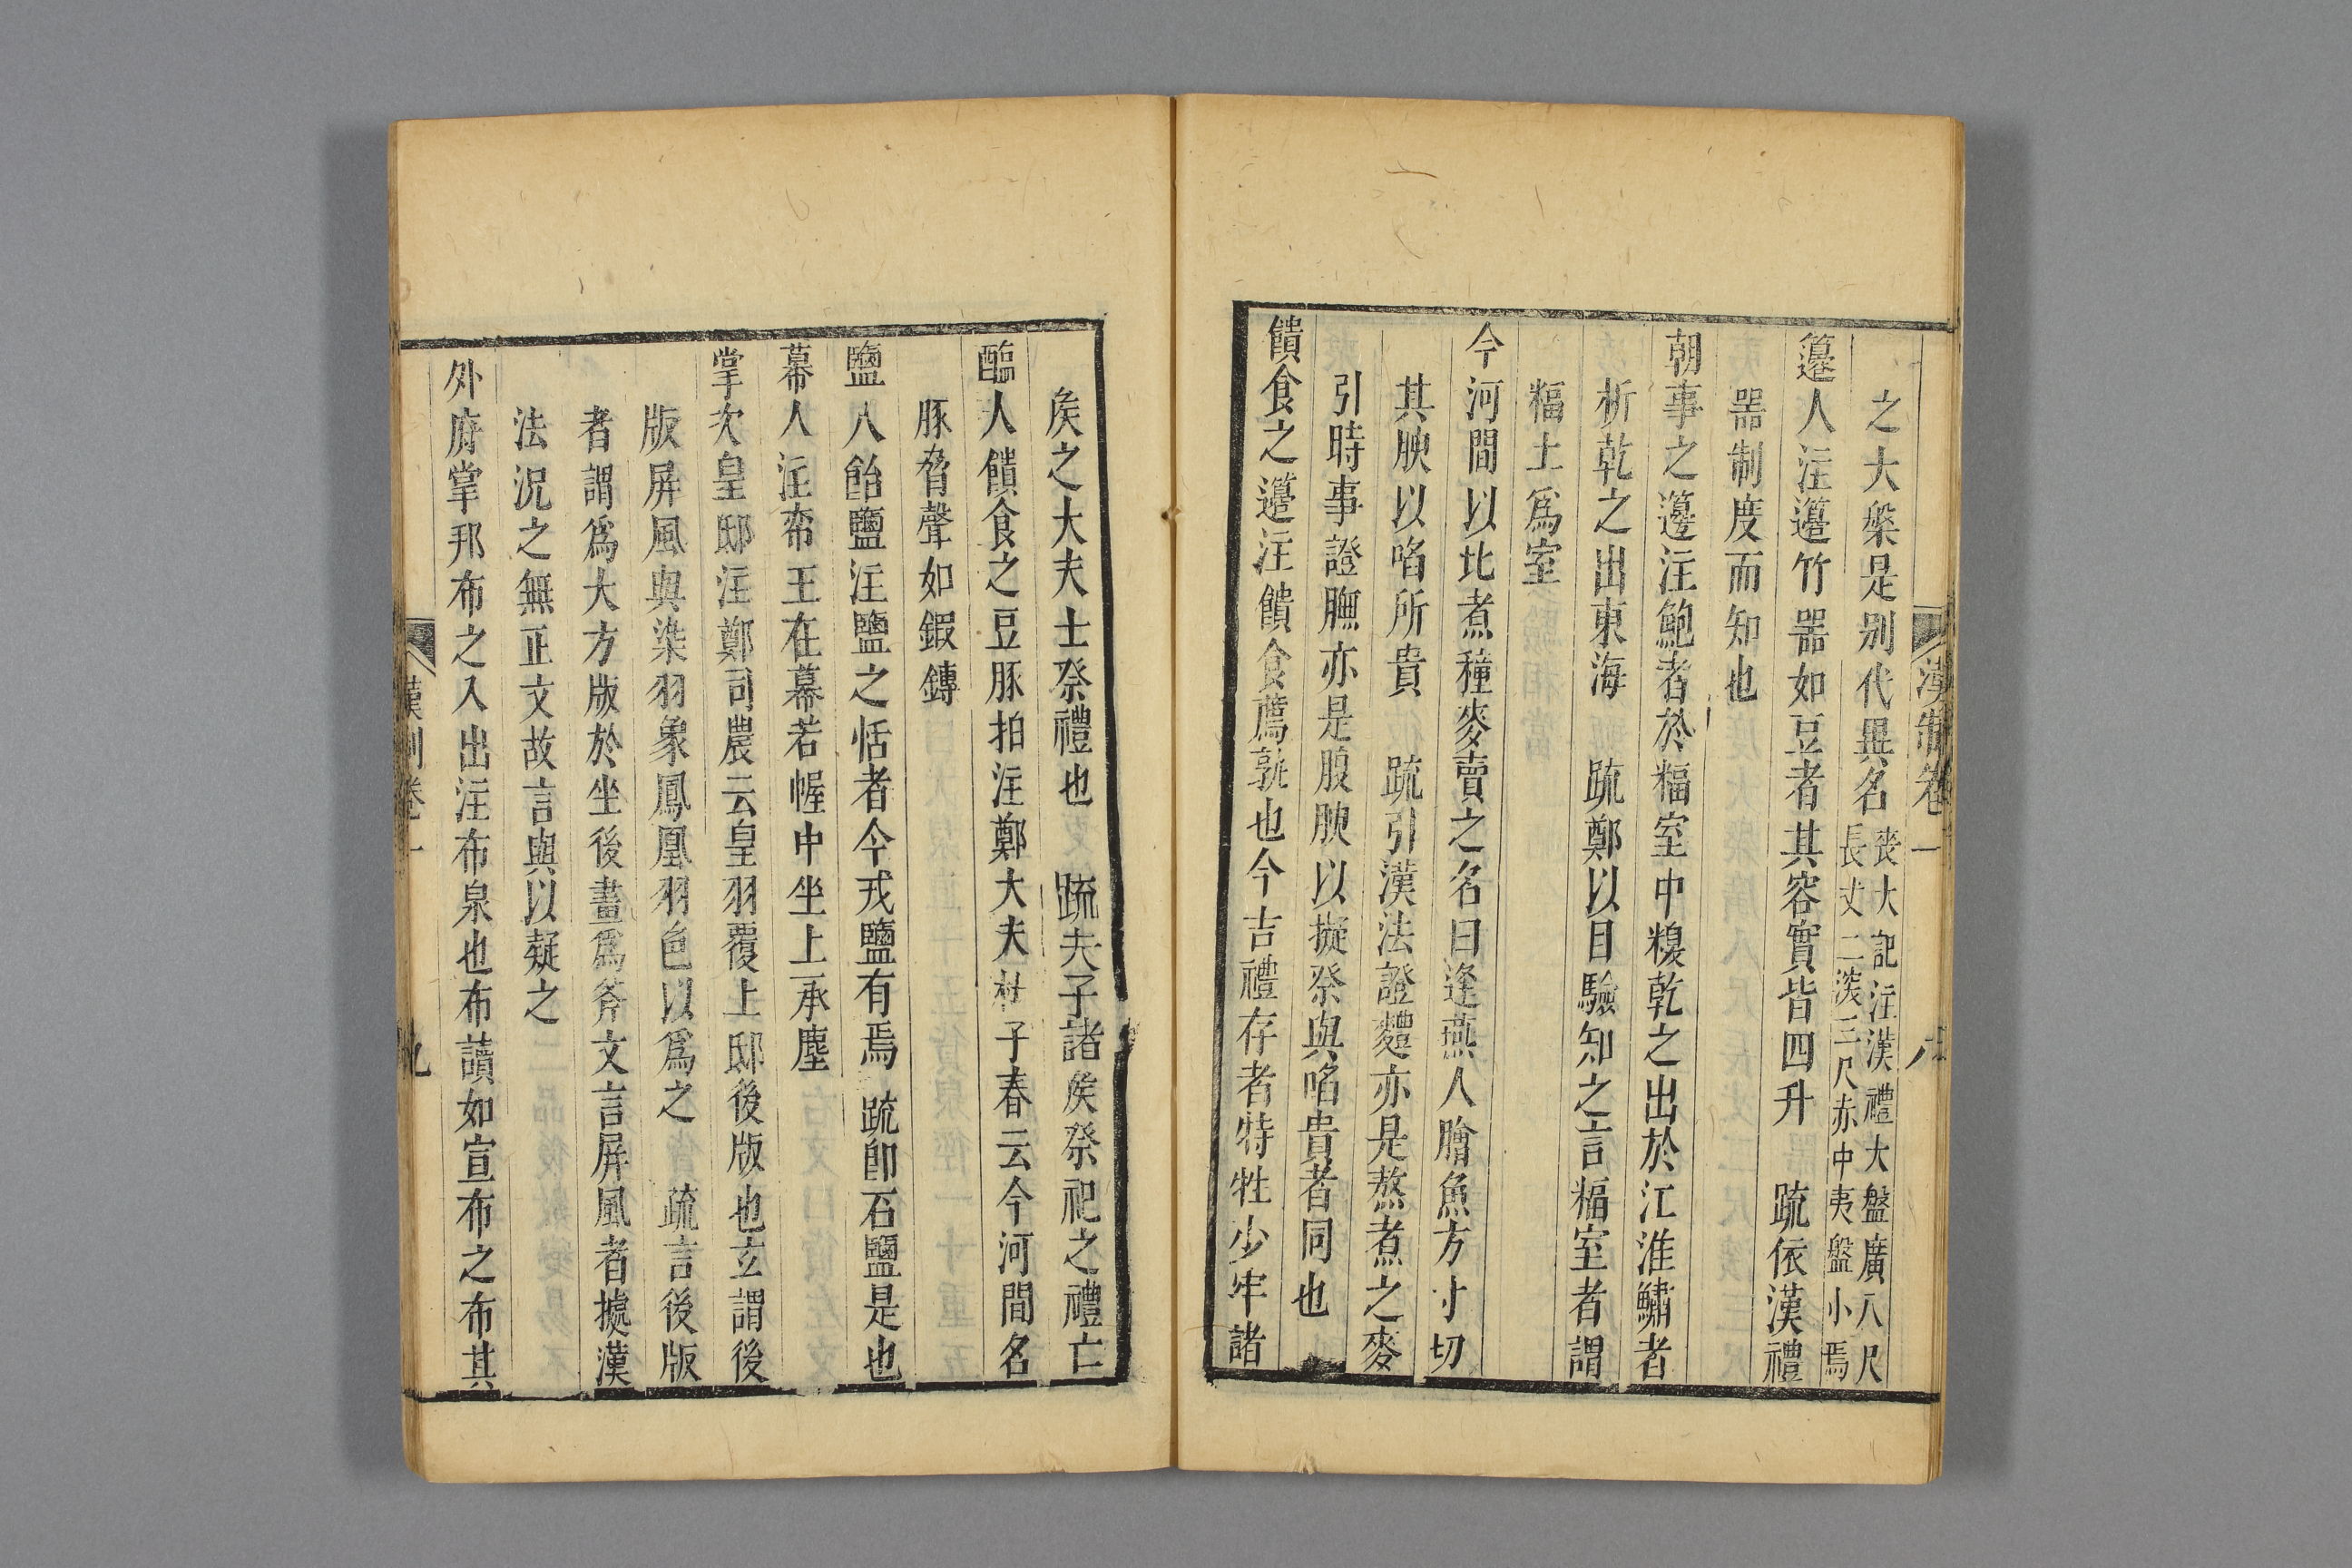 漢制卷一
八
之大槃是別代異名
喪大記注漢禮大盤廣八尺
長丈二深三尺赤中夷盤小焉
籩人注籩竹器如豆者其容實皆四升 疏依漢禮
器制度而知也
朝事之籩注鮑者於楅室中糗乾之出於江淮鱐者
析乾之出東海 疏鄭以目驗知之言楅室者謂
楅土爲室
今河間以北煮穜麥賣之名曰逢燕人膾魚方寸切
其腴以啗所貴 疏引漢法證麷亦是熬煮之麥
引時事證膴亦是腹腴以擬祭與啗貴者同也
饋食之籩注饋食薦孰也今吉禮存者特牲少牢諸
矦之大夫士祭禮也 疏天子諸矦祭祀之禮亡
醢人饋食之豆豚拍注鄭大夫杜子春云今河間名
豚脅聲如鍜鏄
鹽人飴鹽注鹽之恬者今戎鹽有焉 疏卽石鹽是也
幕人注帟王在幕若幄中坐上承塵
掌次皇邸注鄭司農云皇羽覆上邸後版也玄謂後
版屏風與染羽象鳳凰羽色以爲之 疏言後版
者謂爲大方版於坐後畫爲斧文言屏風者據漢
法況之無正文故言與以疑之
外府掌邦布之入出注布泉也布讀如宣布之布其
漢制卷一
九